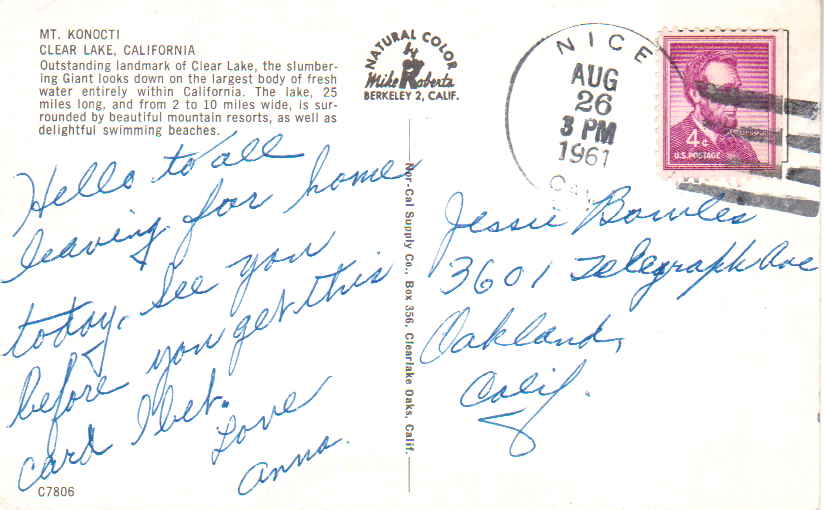 MT. KONOCTI
CLEAR LAKE, CALIFORNIA
Outstanding landmark of Clear Lake, the slumber-
ing Giant looks down on the largest body of fresh
water entirely within California. The lake, 25
miles long, and from 2 to 10 miles wide, is sur-
rounded by beautiful mountain resorts, as well as
delightful swimming beaches.
NATURAL COLOR
by
Mike Roberts
BERKELEY 2, CALIF.
NICE
AUG
26
3 PM
1961
4¢
U.S. POSTAGE
Hello to all
leaving for home
today, See you
before you get this
card I bet.
Love
Anna.
Nor-Cal Supply Co., Box 356, Clearlake Oaks, Calif.
Jessie Bowles
3601 Telegraph Ave
Oakland,
Calif.
C7806